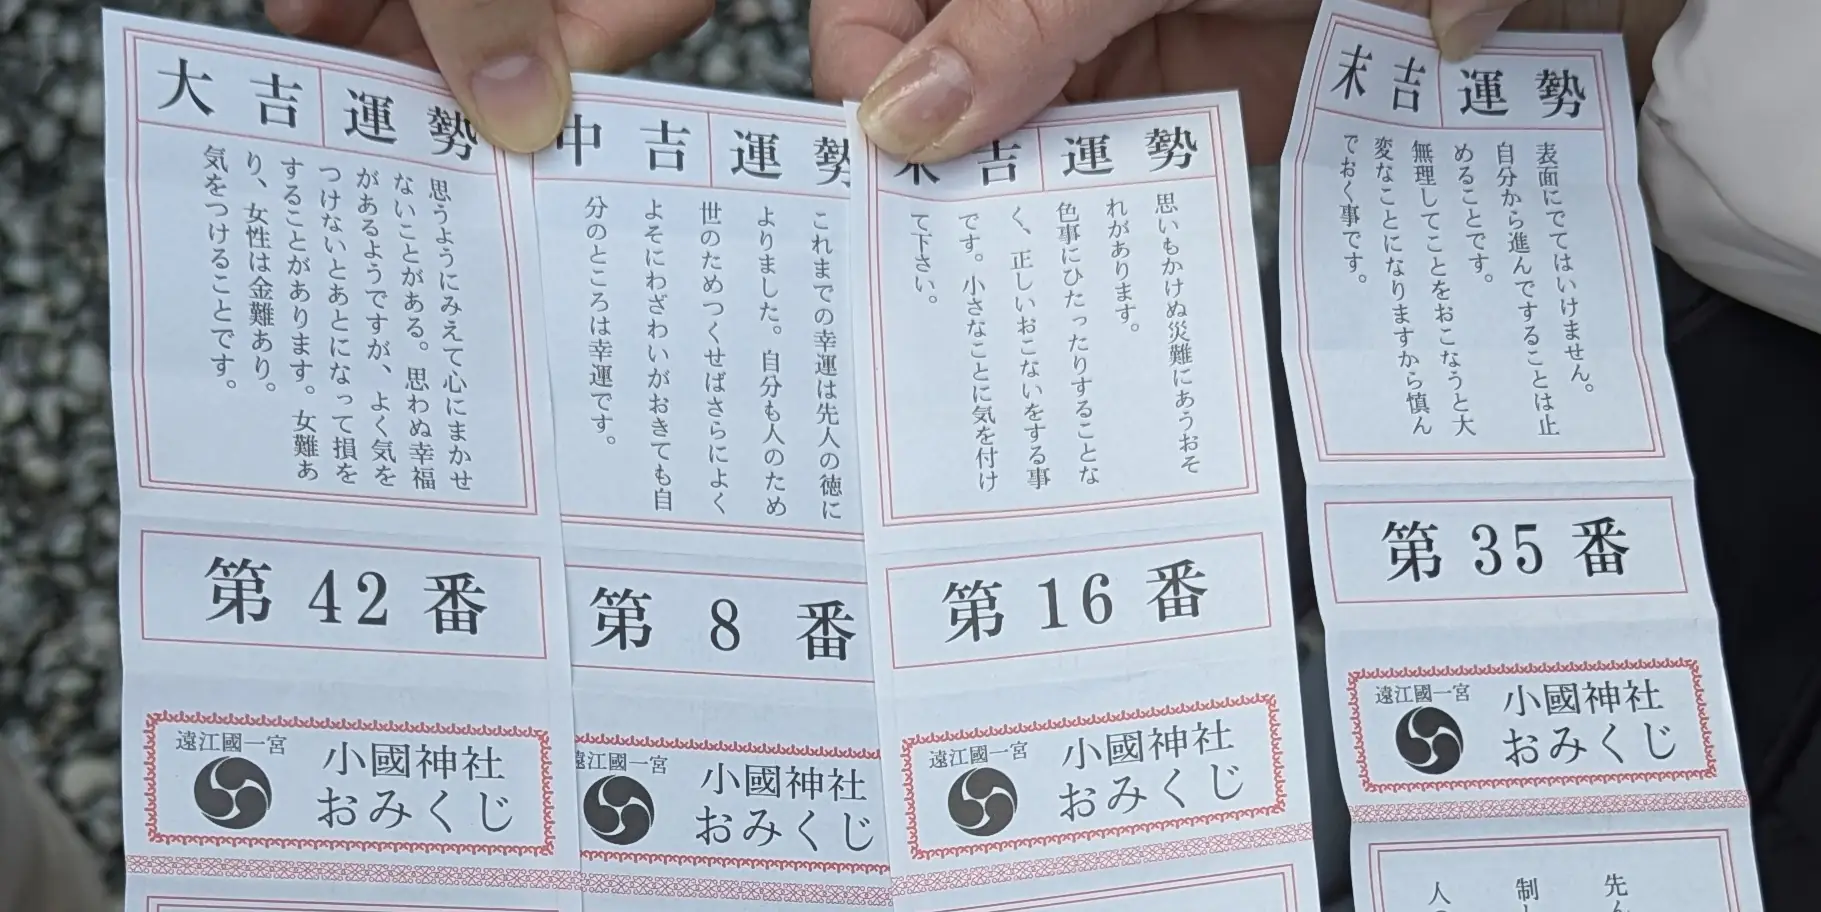 大吉運勢
思うようにみえて心にまかせ
ないことがある。思わぬ幸福
があるようですが、よく気を
つけないとあとになって損を
することがあります。女難あ
り、女性は金難あり。
気をつけることです。
第42番
遠江國一宮
小國神社
おみくじ
中吉運勢
これまでの幸運は先人の徳に
よりました。自分も人のため
世のためつくせばさらによく
よそにわざわいがおきても自
分のところは幸運です。
第8番
遠江國一宮
小國神社
おみくじ
末吉運勢
思いもかけぬ災難にあうおそ
れがあります。
色事にひたったりすることな
く、正しいおこないをする事
です。小さなことに気を付け
て下さい。
第16番
遠江國一宮
小國神社
おみくじ
末吉運勢
表面にでてはいけません。
自分から進んですることは止
めることです。
無理してことをおこなうと大
変なことになりますから慎ん
でおく事です。
第35番
遠江國一宮
小國神社
おみくじ
先ん
制
人